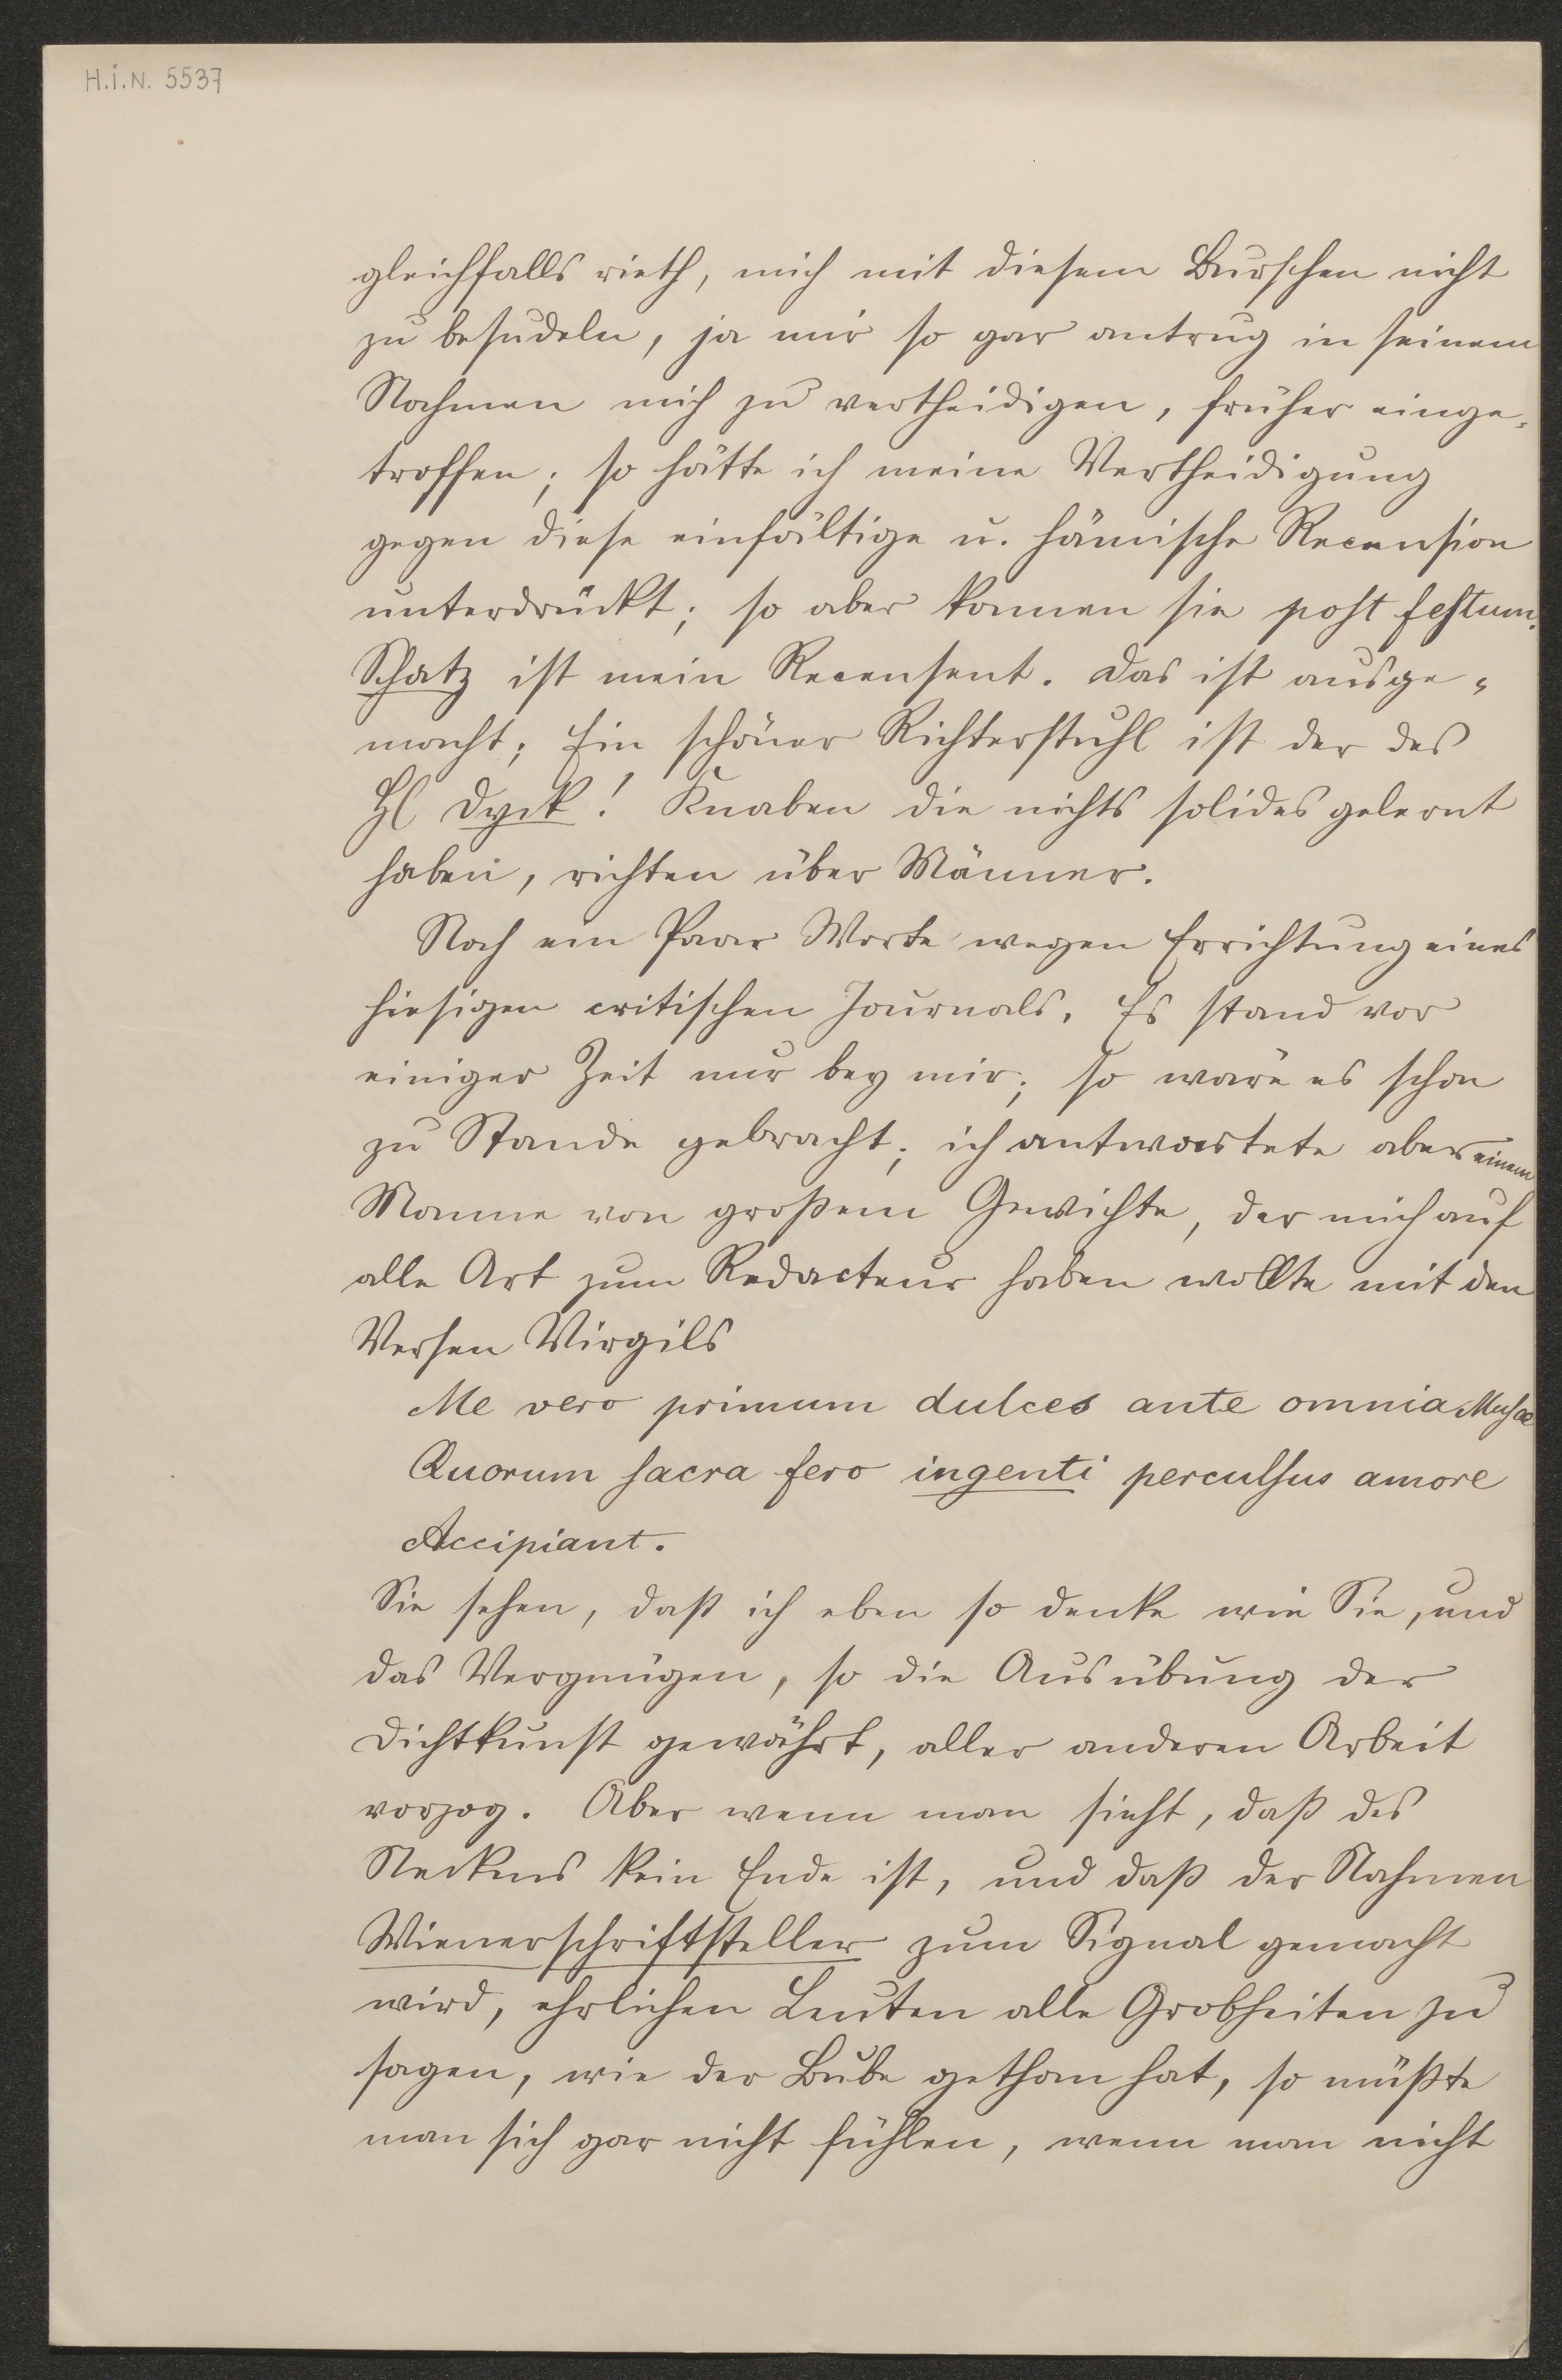 H.I.N. 5537
gleichfalls rieth, mich mit diesem Burschen nicht
zu besudeln, ja mir so gar antrug in seinem
Nahmen mich zu vertheidigen, früher einge-
troffen; so hätte ich meine Vertheidigung
gegen diese einfältige u. hämische Recension
unterdrückt; so aber kamen sie post festum.
Schatz ist mein Recensent. Das ist ausge-
macht; Ein schöner Richterstuhl ist der des
H Dyck! Knaben die nichts solides gelernt
haben, richten über Männer.
Noch ein Paar Worte wegen Errichtung eines
hiesigen critischen Journals. Es stand vor
einiger Zeit nur bey mir; so wäre es schon
zu Stande gebracht; ich antwortete aber einem
Manne von großem Gewichte, der mich auf
alle Art zum Redacteur haben wollte mit den
Versen Virgils
Me vero primum dulces ante omnia Musae
Quorum sacra fero ingenti perculsus amore
Accipiant.
Sie sehen, daß ich eben so denke wie Sie, und
das Vergnügen, so die Ausübung der
Dichtkunst gewährt, aller anderen Arbeit
vorzog. Aber wenn man sieht, daß des
Neckens kein Ende ist, und daß der Nahmen
Wienerschriftsteller zum Signal gemacht
wird, ehrlichen Leuten alle Grobheiten zu
sagen, wie der Bube gethan hat, so müßte
man sich gar nicht fühlen, wenn man nicht